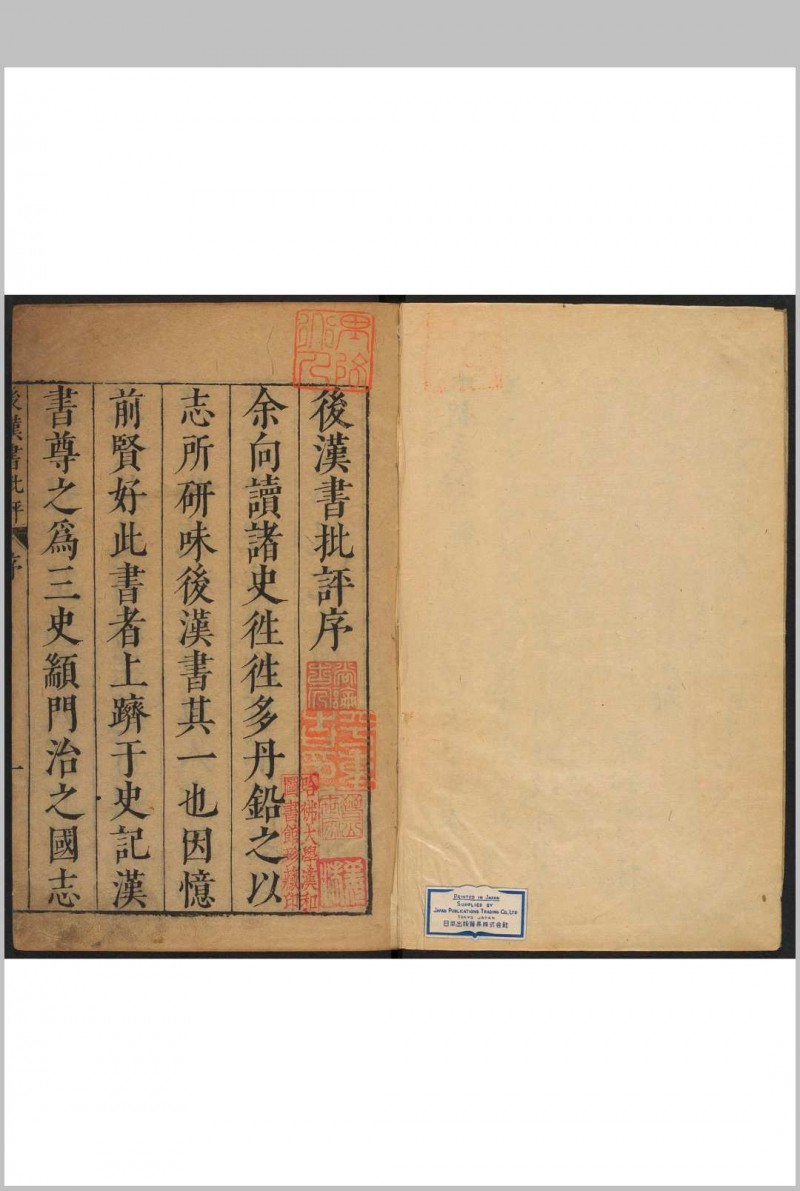 後漢書批評序
余向讀諸史徃徃多丹鉛之以
志所研味後漢書其一也因憶
前賢好此書者上躋于史記漢
書尊之爲三史顓門治之國志
後漢書批評 序 一
哈佛大學漢和
圖書館珍藏印
PRINTED IN JAPAN
SUPPLIED BY
JAPAN PUBLICATIONS TRADING CO., LTD
TOKYO JAPAN
日本出版貿易株式會社